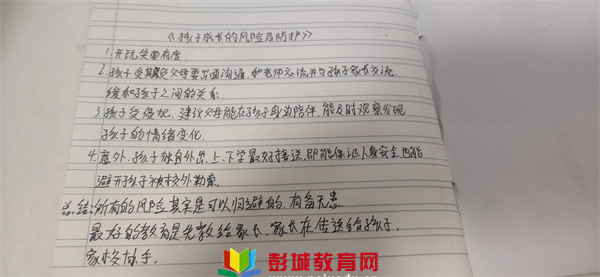 《孩子成长的风险及防护》
1.开玩笑要有度.
2.孩子受其气父母要出面沟通,如老师交流并与孩子家长交流
缓和孩子之间的关系.
3.孩子受侵犯,建议父母能在孩子身边陪伴,能及时观察发现
孩子的情绪变化.
4.意外,孩子独自外出,上、下学最好接送,即能保证人身安全也能
避开孩子被校外勒索.
总结:所有的风险其实是可以归避的.有备无患.
最好的教育是先教给家长.家长在传送给孩子.
家校携手.
彭城教育网